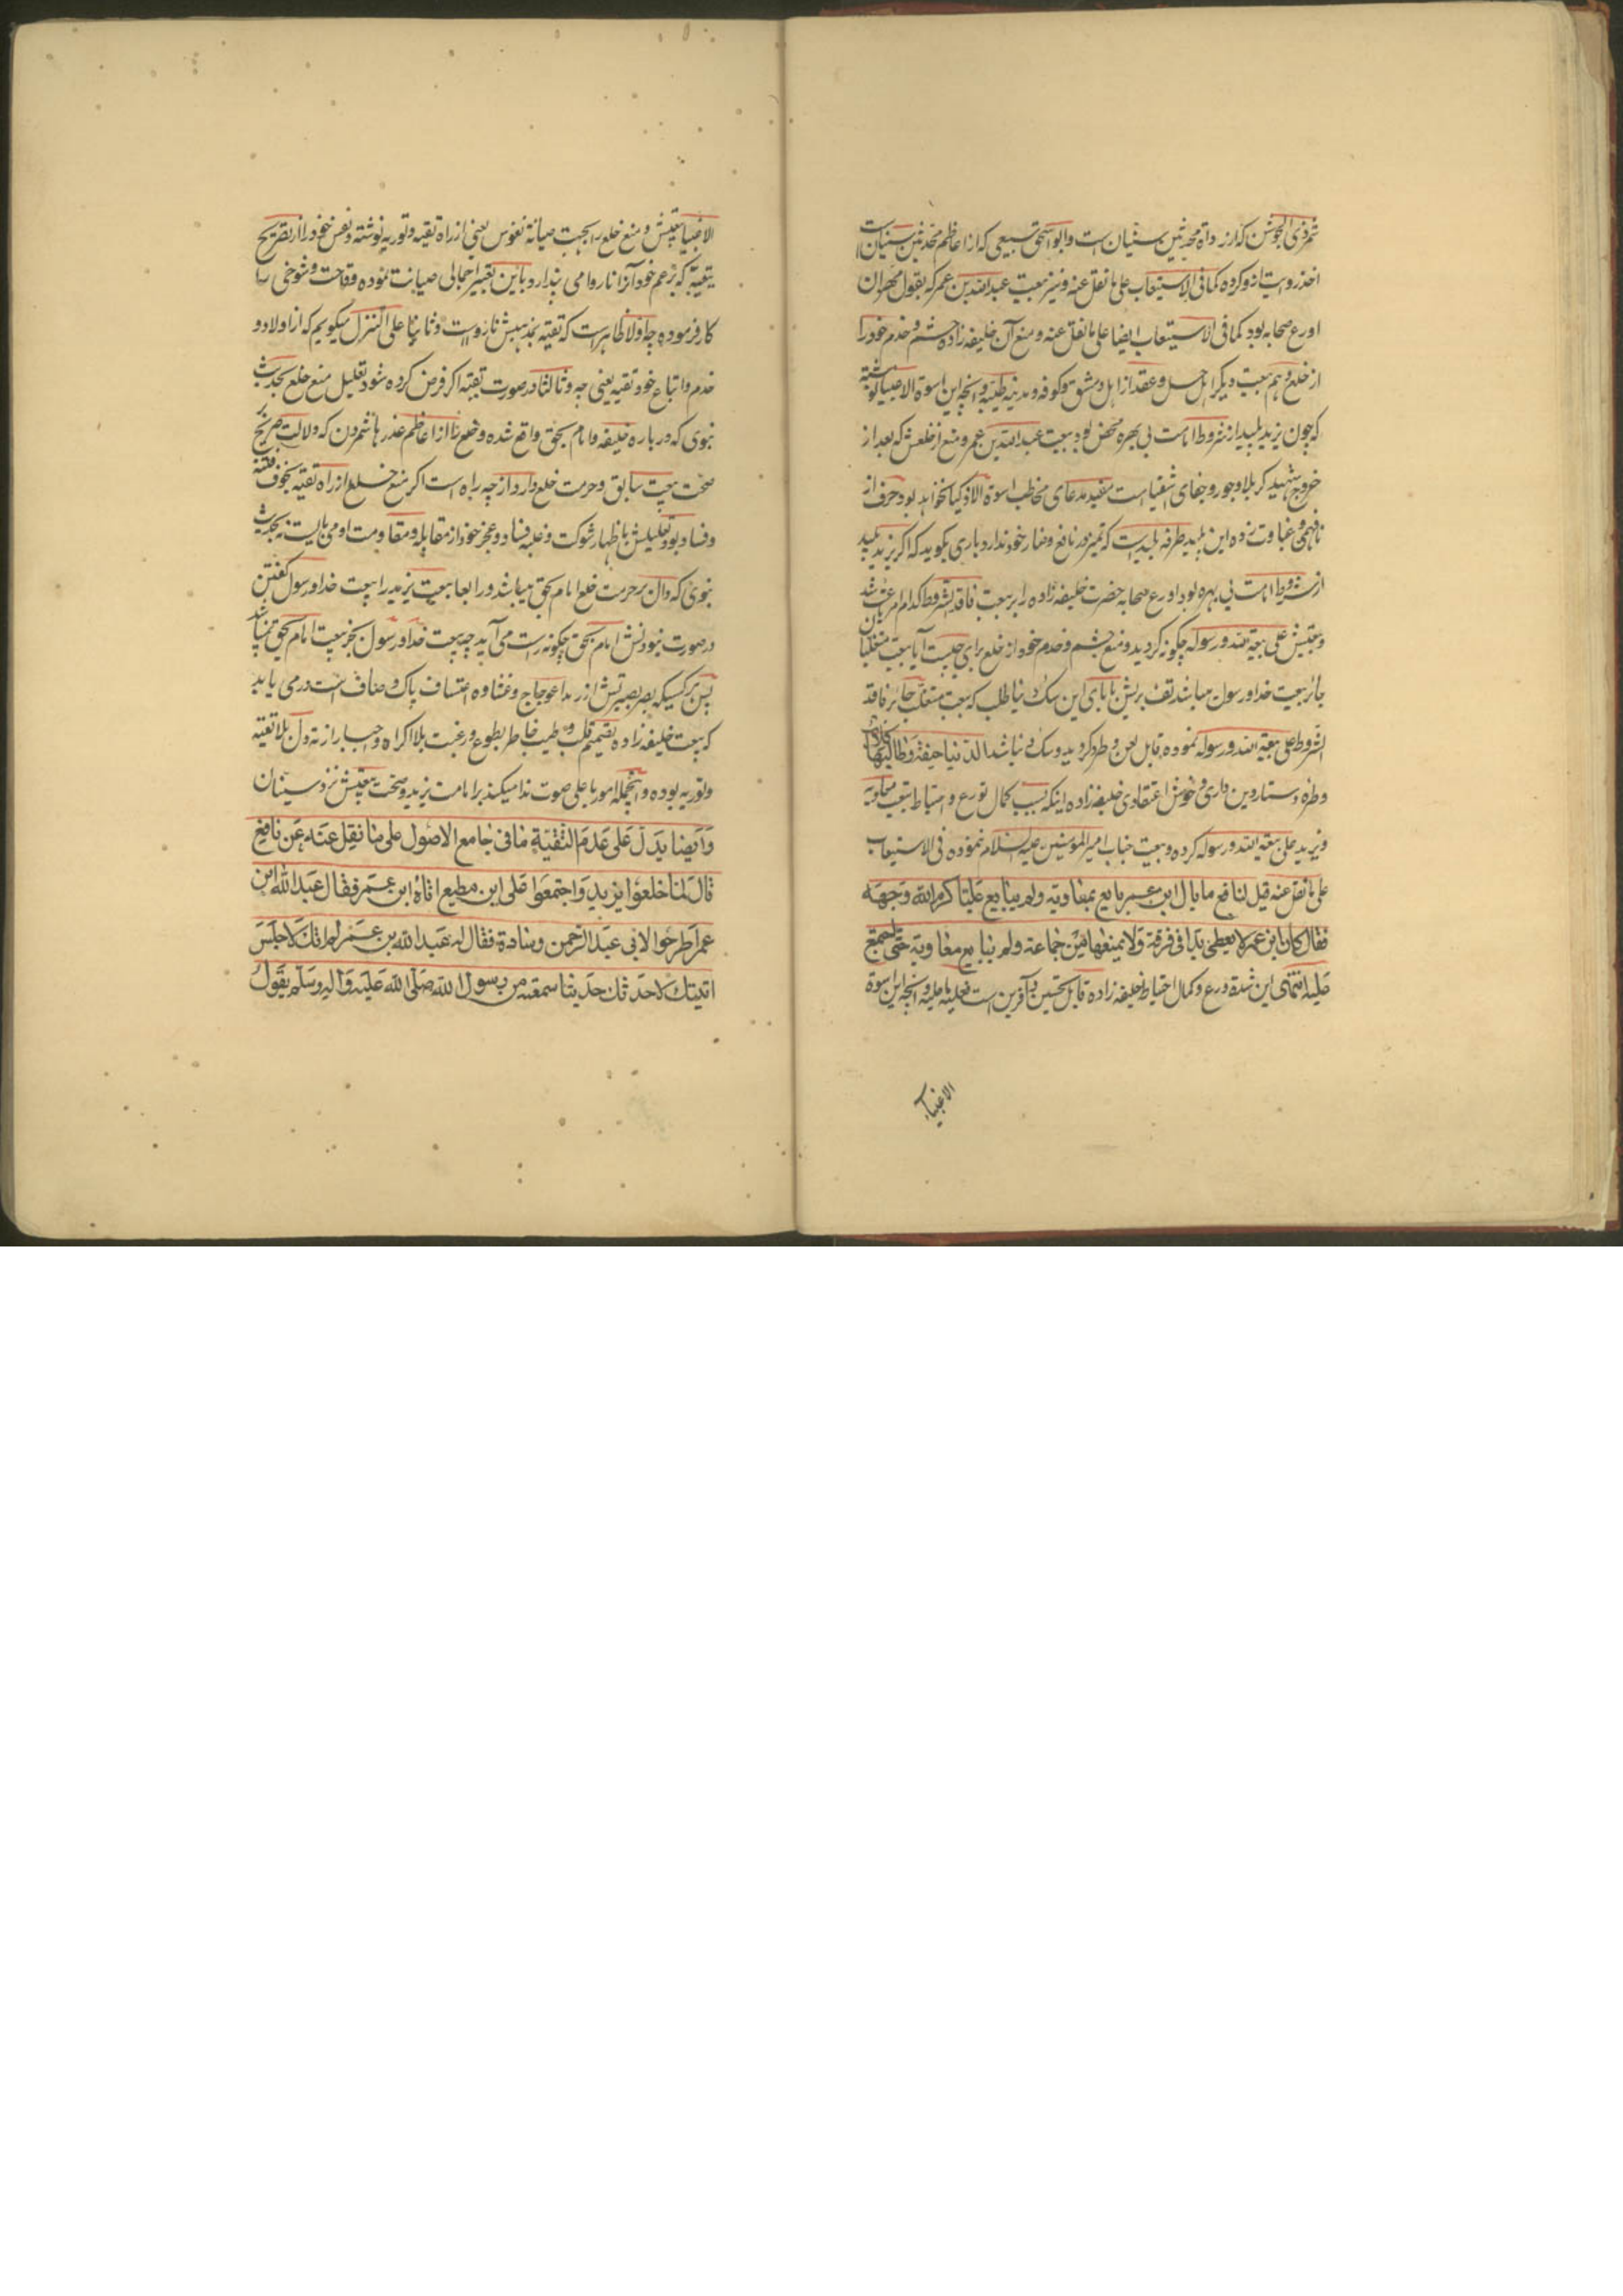 شمر ذی الجوشن که از رواة محدثین سنیان است و ابو اسحق سبیعی که از اعاظم محدثین سنیان است
اخذ روایت از و کرده کما فی الاستیعاب علی ما نقل عنه و نیز بیعت عبد الله بن عمر که بقول مهران
اورع صحابه بود کما فی الاستیعاب ایضا علی ما نقل عنه و منع آن خلیفه زاده حشم و خدم خود را
از خلع و هم بیعت دیگر اهل حل و عقد از اهل دمشق و کوفه و مدینه طیبه و آنچه این اسوة الاغبیا نوشته
که چون یزید پلید از شروط امامت بی بهره محض بود بیعت عبد الله بن عمر و منع از خلعش که بعد از
خروج شهید کربلا و جور و جفای اشقیا است مفید مدعای مخاطب اسوة الاذکیا نخواهد بود حرف از
نافهمی و غباوت زده این بلید طرفه بلیدیست که تمیز در نافع و ضار خود ندارد باری بگوید که اگر یزید پلید
از شروط امامت بی بهره بود اورع صحابه حضرت خلیفه زاده را بر بیعت فاقد الشروط کدام امر باعث شد
و بیعتش علی بیعة الله و رسوله چگونه گردید و منع حشم و خدم خود از خلع برای چیست آیا بیعت متغلبان
جائر بیعت خدا و رسول میباشد تف بریش بابای این سگ دنیا طلب که بیعت متغلب جائر فاقد
الشروط علی بیعة الله و رسوله نموده قابل لعن و طرد گردید و سگ دنیا شد الدنیا جیفة و طالبها کلاب
و طره دستار دین داری و خوش اعتقادی خلیفه زاده اینکه بسبب کمال تورع و احتیاط بیعت معاویه
و یزید علی بیعة الله و رسوله کرده و بیعت جناب امیر المومنین علیه السلام ننموده فی الاستیعاب
علی ما نقل عنه قیل لنافع ما بال ابن عمر بایع بمعاویة ولم یبایع علیا کرم الله وجهه
فقال کان ابن عمر لا یعطی یدا فی فرقة ولا یمنعها من جماعة ولم یبایع معاویة حتی اجتمع
علیه انتهی این شدة ورع و کمال احتیاط خلیفه زاده قابل تحسین و آفرین است فعلیه ما علیه و آنچه این اسوة
الاغبیاء
الاغبیا بیعتش و منع خلع را بجهت صیانة نفوس یعنی از راه تقیه و توریه نوشته و نفس خود را از تصریح
بتقیه که بزعم خود آنرا ناروا می پندارد باین تعبیر اجمالی صیانت نموده وقاحت و شوخی را
کار فرموده چه اولا ظاهر است که تقیه بمذهبش نارواست و ثانیا علی التنزل میگویم که از اولاد و
خدم و اتباع خود تقیه یعنی چه و ثالثا در صورت تقیه اگر فرض کرده شود تعلیل منع خلع بحدیث
نبوی که در باره خلیفه و امام بحق واقع شده و خلع را از اعاظم غدرها شمردن که دلالت صریح
صحت بیعت سابق و حرمت خلع دارد از چه راه است اگر منع خلع از راه تقیه بخوف فتنه
و فساد بود تعلیلش باظهار شوکت و غلبه فساد و عجز خود از مقابله و مقاومت او می بایست نه بحدیث
نبوی که دال بر حرمت خلع امام بحق میباشد و رابعا بیعت یزید را بیعت خدا و رسول گفتن
در صورت نبودنش امام بحق چگونه راست می آید چه بیعت خدا و رسول بجز بیعت امام بحق نمیباشد
پس هر کسیکه بصر بصیرتش از رمد اعوجاج و غشاوه اعتساف پاک و صاف است در می یابد
که بیعت خلیفه زاده بصمیم قلب و طیب خاطر بطوع و رغبت بلا اکراه و اجبار از ته دل بلا تقیه
و توریه بوده و اینجمله امور با علی صوت ندا میکند بر امامت یزید و صحت بیعتش نزد سنیان
وایضا یدل علی عدم التقیة ما فی جامع الاصول علی ما نقل عنه عن نافع
قال لما خلعوا یزید واجتمعوا علی ابن مطیع اتاه ابن عمر فقال عبد الله ابن
عمر اطرحوا لابی عبد الرحمن وسادة فقال له عبد الله بن عمر لم اتک لاجلس
اتیتک لاحدثک حدیثا سمعته من رسول الله صلی الله علیه واله وسلم یقول